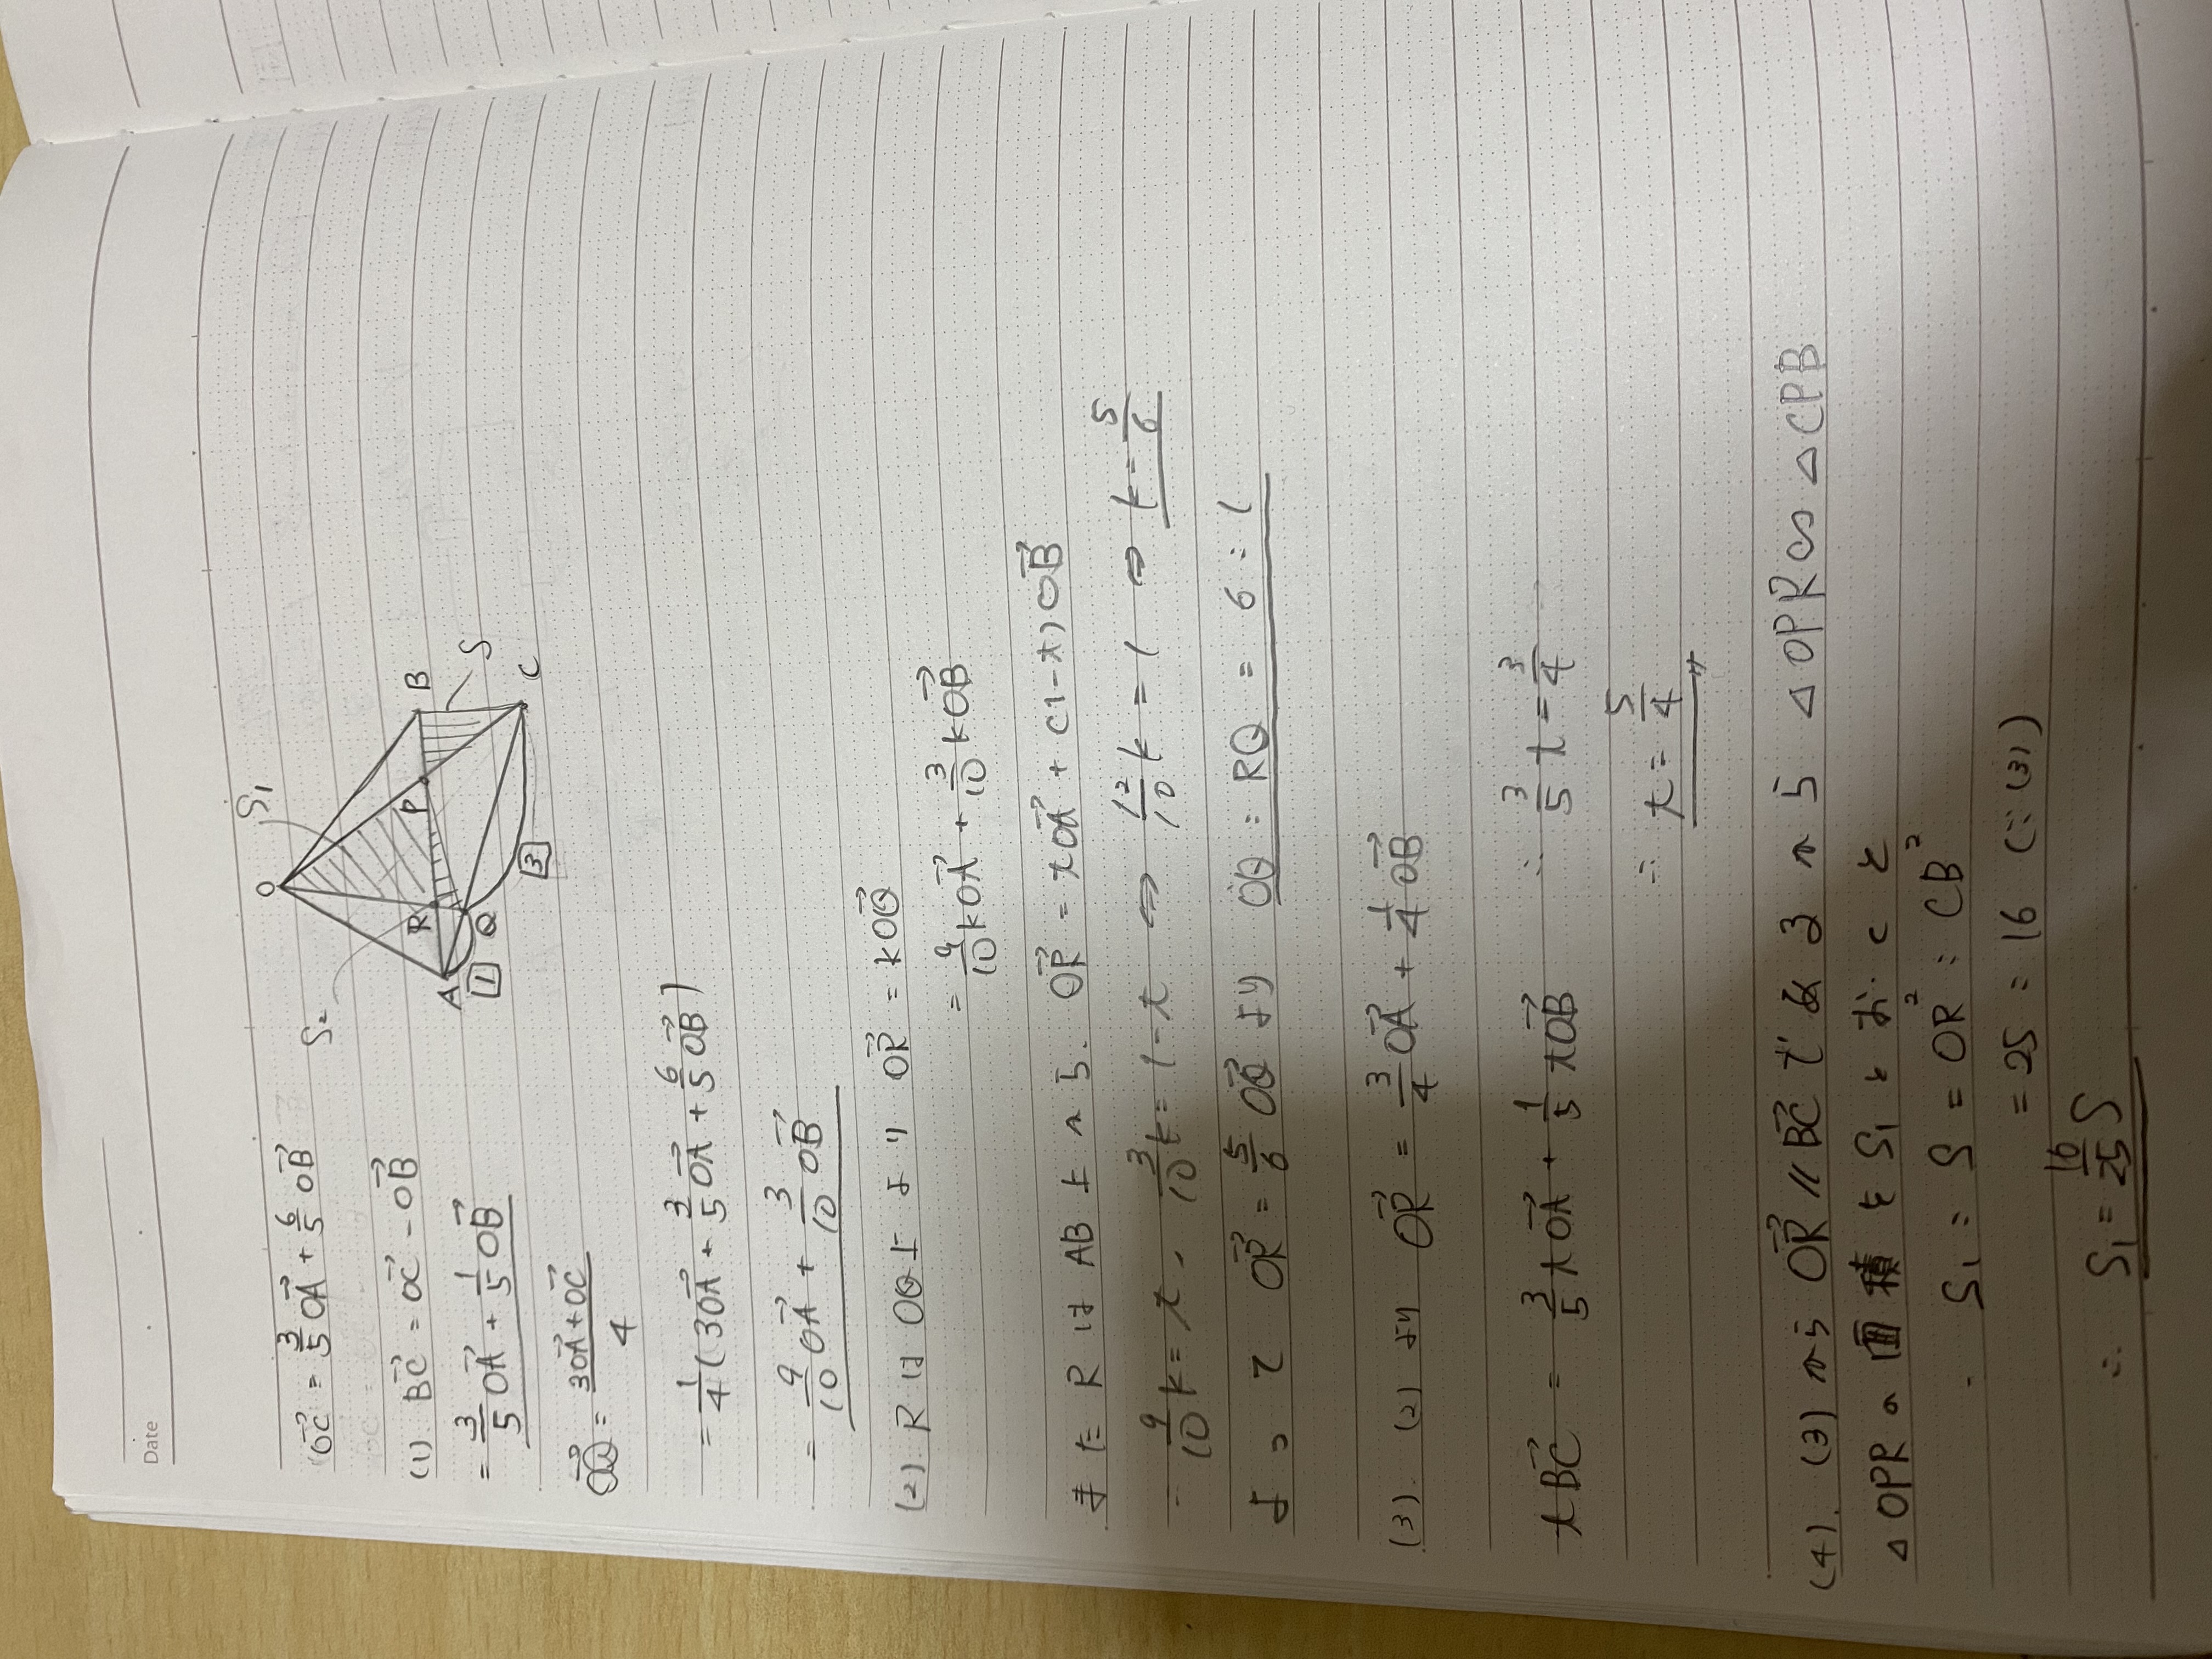 Date
OC→ = 3/5 OA→ + 6/5 OB→
(1) BC→ = OC→ - OB→
= 3/5 OA→ + 1/5 OB→
OQ→ = 3OA→+OC→ / 4
= 1/4 (3OA→ + 3/5 OA→ + 6/5 OB→)
= 9/10 OA→ + 3/10 OB→
S1
O
S2
A
R
P
B
S
1
Q
3
C
(2) RはOQ上より OR→ = kOQ→
= 9/10 kOA→ + 3/10 kOB→
またRはAB上から. OP→ = tOA→ + (1-t)OB→
9/10 k = t, 3/10 k = 1-t ⇔ 12/10 k = 1 ⇔ k = 5/6
よって OR→ = 5/6 OQ→ より OQ : RQ = 6 : 1
(3). (2)より OR→ = 3/4 OA→ + 1/4 OB→
tBC→ = 3/5 tOA→ + 1/5 tOB→ ∴ 3/5 t = 3/4
∴ t = 5/4
(4). (3)から OR→ // BC→ であるから △OPR ∽ △CPB
△OPRの面積をS1とおくと
S1 : S = OR² : CB²
= 25 : 16 (∵(3))
∴ S1 = 16/25 S